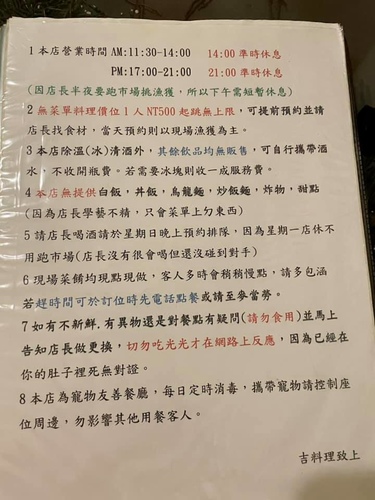 1 本店營業時間 AM:11:30-14:00 14:00 準時休息
PM:17:00-21:00 21:00 準時休息
(因店長半夜要跑市場挑漁獲，所以下午需短暫休息)
2 無菜單料理價位 1 人 NT500 起跳無上限，可提前預約並請
店長找食材，當天預約則以現場漁獲為主。
3 本店除溫(冰)清酒外，其餘飲品均無販售，可自行攜帶酒
水，不收開瓶費。若需要冰塊則收一成服務費。
4 本店無提供白飯，丼飯，烏龍麵，炒飯麵，炸物，甜點
(因為店長學藝不精，只會菜單上勿東西)
5 請店長喝酒請於星期日晚上預約排隊，因為星期一店休不
用跑市場(店長沒有很會喝但還沒碰到對手)
6 現場菜餚均現點現做，客人多時會稍稍慢點，請多包涵
若趕時間可於訂位時先電話點餐或請至麥當勞。
7 如有不新鮮.有異物還是對餐點有疑問(請勿食用)並馬上
告知店長做更換，切勿吃光光才在網路上反應，因為已經在
你的肚子裡死無對證。
8 本店為寵物友善餐廳，每日定時消毒，攜帶寵物請控制座
位周邊，勿影響其他用餐客人。
吉料理致上